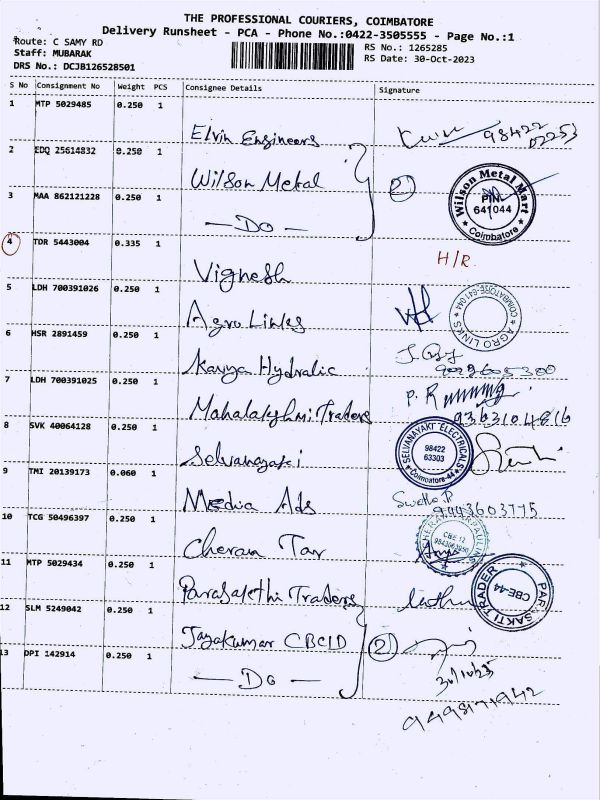 THE PROFESSIONAL COURIERS, COIMBATORE
Delivery Runsheet - PCA - Phone No.:0422-3505555 - Page No.:1
Route: C SAMY RD
RS No.: 1265285
Staff: MUBARAK
RS Date: 30-Oct-2023
DRS No.: DCJB126528501
S No Consignment No Weight PCS Consignee Details Signature
1 MTP 5029485 0.250 1 Elvin Engineers 98422 02253
2 EDQ 25614832 0.250 1 Wilson Metal 2 Wilson Metal Mart PIN 641044 Coimbatore
3 MAA 862121228 0.250 1 — Do —
4 TDR 5443004 0.335 1 Vignesh H/R
5 LDH 700391026 0.250 1 Agro Links * AGRO LINKS * COIMBATORE-641044
6 HSR 2891459 0.250 1 Kavya Hydralic
7 LDH 700391025 0.250 1 Mahalakshmi Traders P.
8 SVK 40064128 0.250 1 Selvanayaki SELVANAYAKI ELECTRICALS 98422 63303 Coimbatore-44
9 TMI 20139173 0.060 1 Media Ads 9443603775
10 TCG 50496397 0.250 1 Cheran Tar CBE-17
11 MTP 5029434 0.250 1 Parasakthi Traders PARASAKTI TRADER CBE-44
12 SLM 5249042 0.250 1 Jayakumar CBCID 2
13 DPI 142914 0.250 1 — Do —